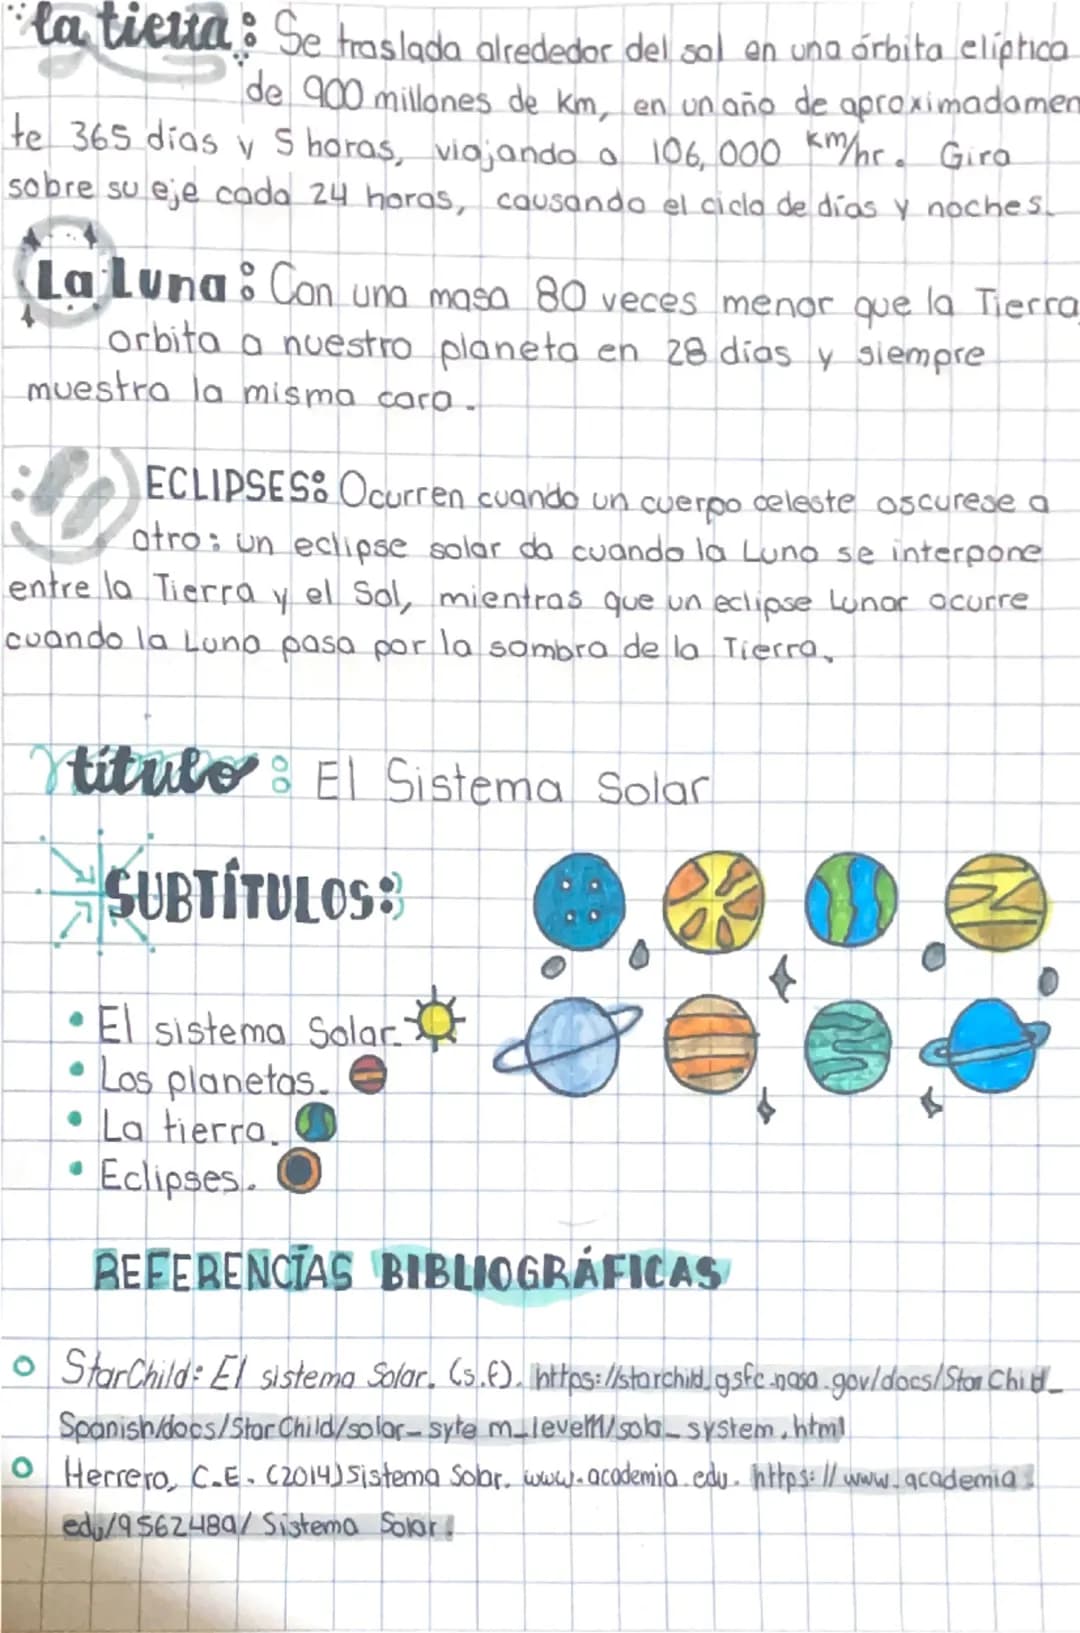 la tierra: Se traslada alrededor del sol en una órbita elíptica
de 900 millones de Km, en un año de aproximadamen
te 365 días y 5 horas, viajando a 106,000 Km/hr. Gira
sobre su eje cada 24 horas, causando el ciclo de días y noches.
La Luna: Con una masa 80 veces menor que la Tierra
orbita a nuestro planeta en 28 días y siempre
muestra la misma cara.
ECLIPSES: Ocurren cuando un cuerpo celeste oscurese a
otro: un eclipse solar da cuando la Luna se interpone
entre la Tierra y el Sol, mientras que un eclipse Lunar ocurre
cuando la Luna pasa por la sombra de la Tierra.
título: El Sistema Solar
SUBTÍTULOS:
• El sistema Solar.
• Los planetas.
• La tierra.
• Eclipses.
REFERENCIAS BIBLIOGRÁFICAS
StarChild: El sistema Solar. (s.f). https://starchild.gsfc.nasa.gov/docs/StarChild_
Spanish/docs/StarChild/solar_syte m_level1/sola_system.html
Herrero, C.E. (2014) Sistema Solar. www.academia.edu. https://www.academia.
edu/9562489/Sistema Solar.